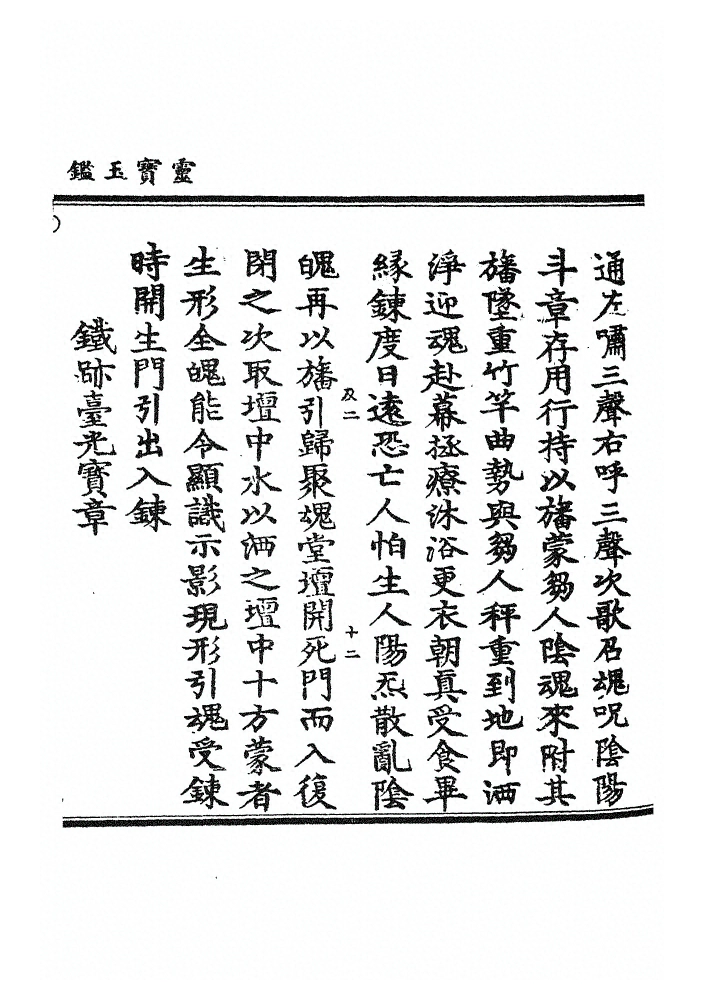 靈寶玉鑑
通左嘯三聲右呼三聲次歌召魂呪陰陽
斗章存用行持以旛蒙芻人陰魂來附其
旛墜重竹竿曲勢與芻人秤重到地即洒
淨迎魂赴幕拯療沐浴更衣朝真受食畢
緣鍊度日遠恐亡人怕生人陽炁散亂陰
及二 十二
魄再以旛引歸聚魂堂壇開死門而入復
閉之次取壇中水以洒之壇中十方蒙者
生形全魄能令顯識示影現形引魂受鍊
時開生門引出入鍊
鐵跡臺光寶章